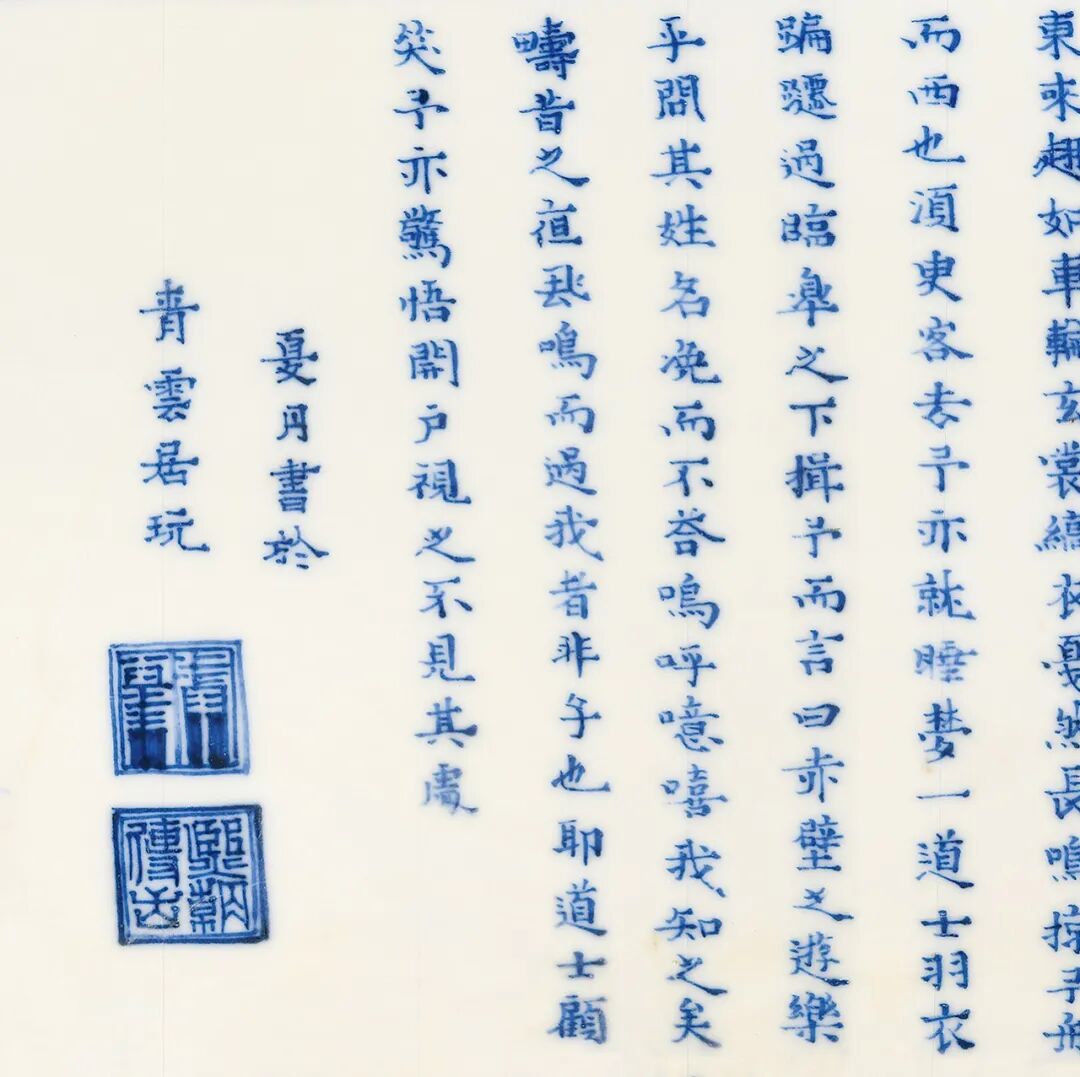 東來翅如車輪玄裳縞衣戛然長鳴掠予舟
而西也湏臾客去予亦就睡夢一道士羽衣
蹁躚過臨臯之下揖予而言曰赤壁之遊樂
乎問其姓名俛而不荅嗚呼噫嘻我知之矣
疇昔之夜飛鳴而過我者非子也耶道士顧
笑予亦驚悟開戶視之不見其處
夏月書於
青雲居玩
熙朝傳古